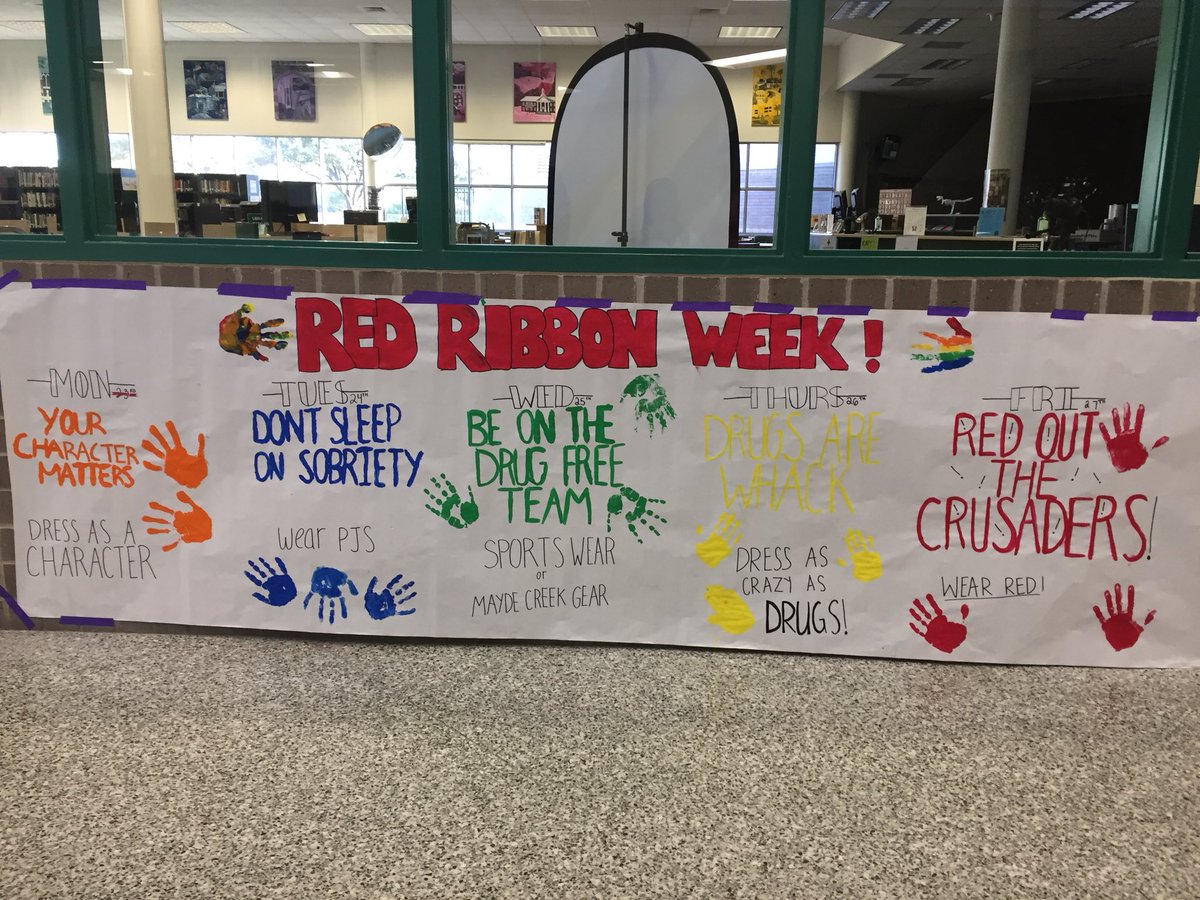 RED RIBBON WEEK!
MON 23RD
YOUR
CHARACTER
MATTERS
DRESS AS A
CHARACTER
TUES 24TH
DONT SLEEP
ON SOBRIETY
wear PJS
WED 25TH
BE ON THE
DRUG FREE
TEAM
SPORTS WEAR
or
MAYDE CREEK GEAR
THURS 26TH
DRUGS ARE
WHACK
DRESS AS
CRAZY AS
DRUGS!
FRI 27TH
RED OUT
THE
CRUSADERS!
WEAR RED!